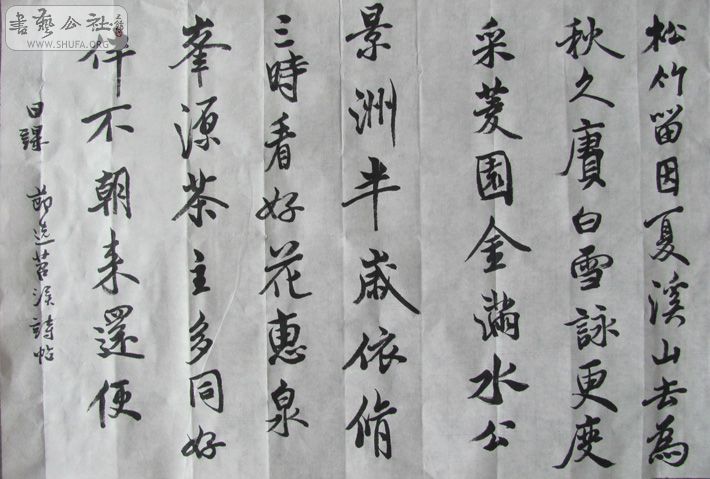 書藝公社
WWW.SHUFA.ORG
松竹留因夏溪山去為
秋久賡白雪詠更度
采菱園金滿水公
景洲半歲依脩
三時看好花惠泉
峯源茶主多同好
伴不朝来還便
日課 節選苕溪詩帖